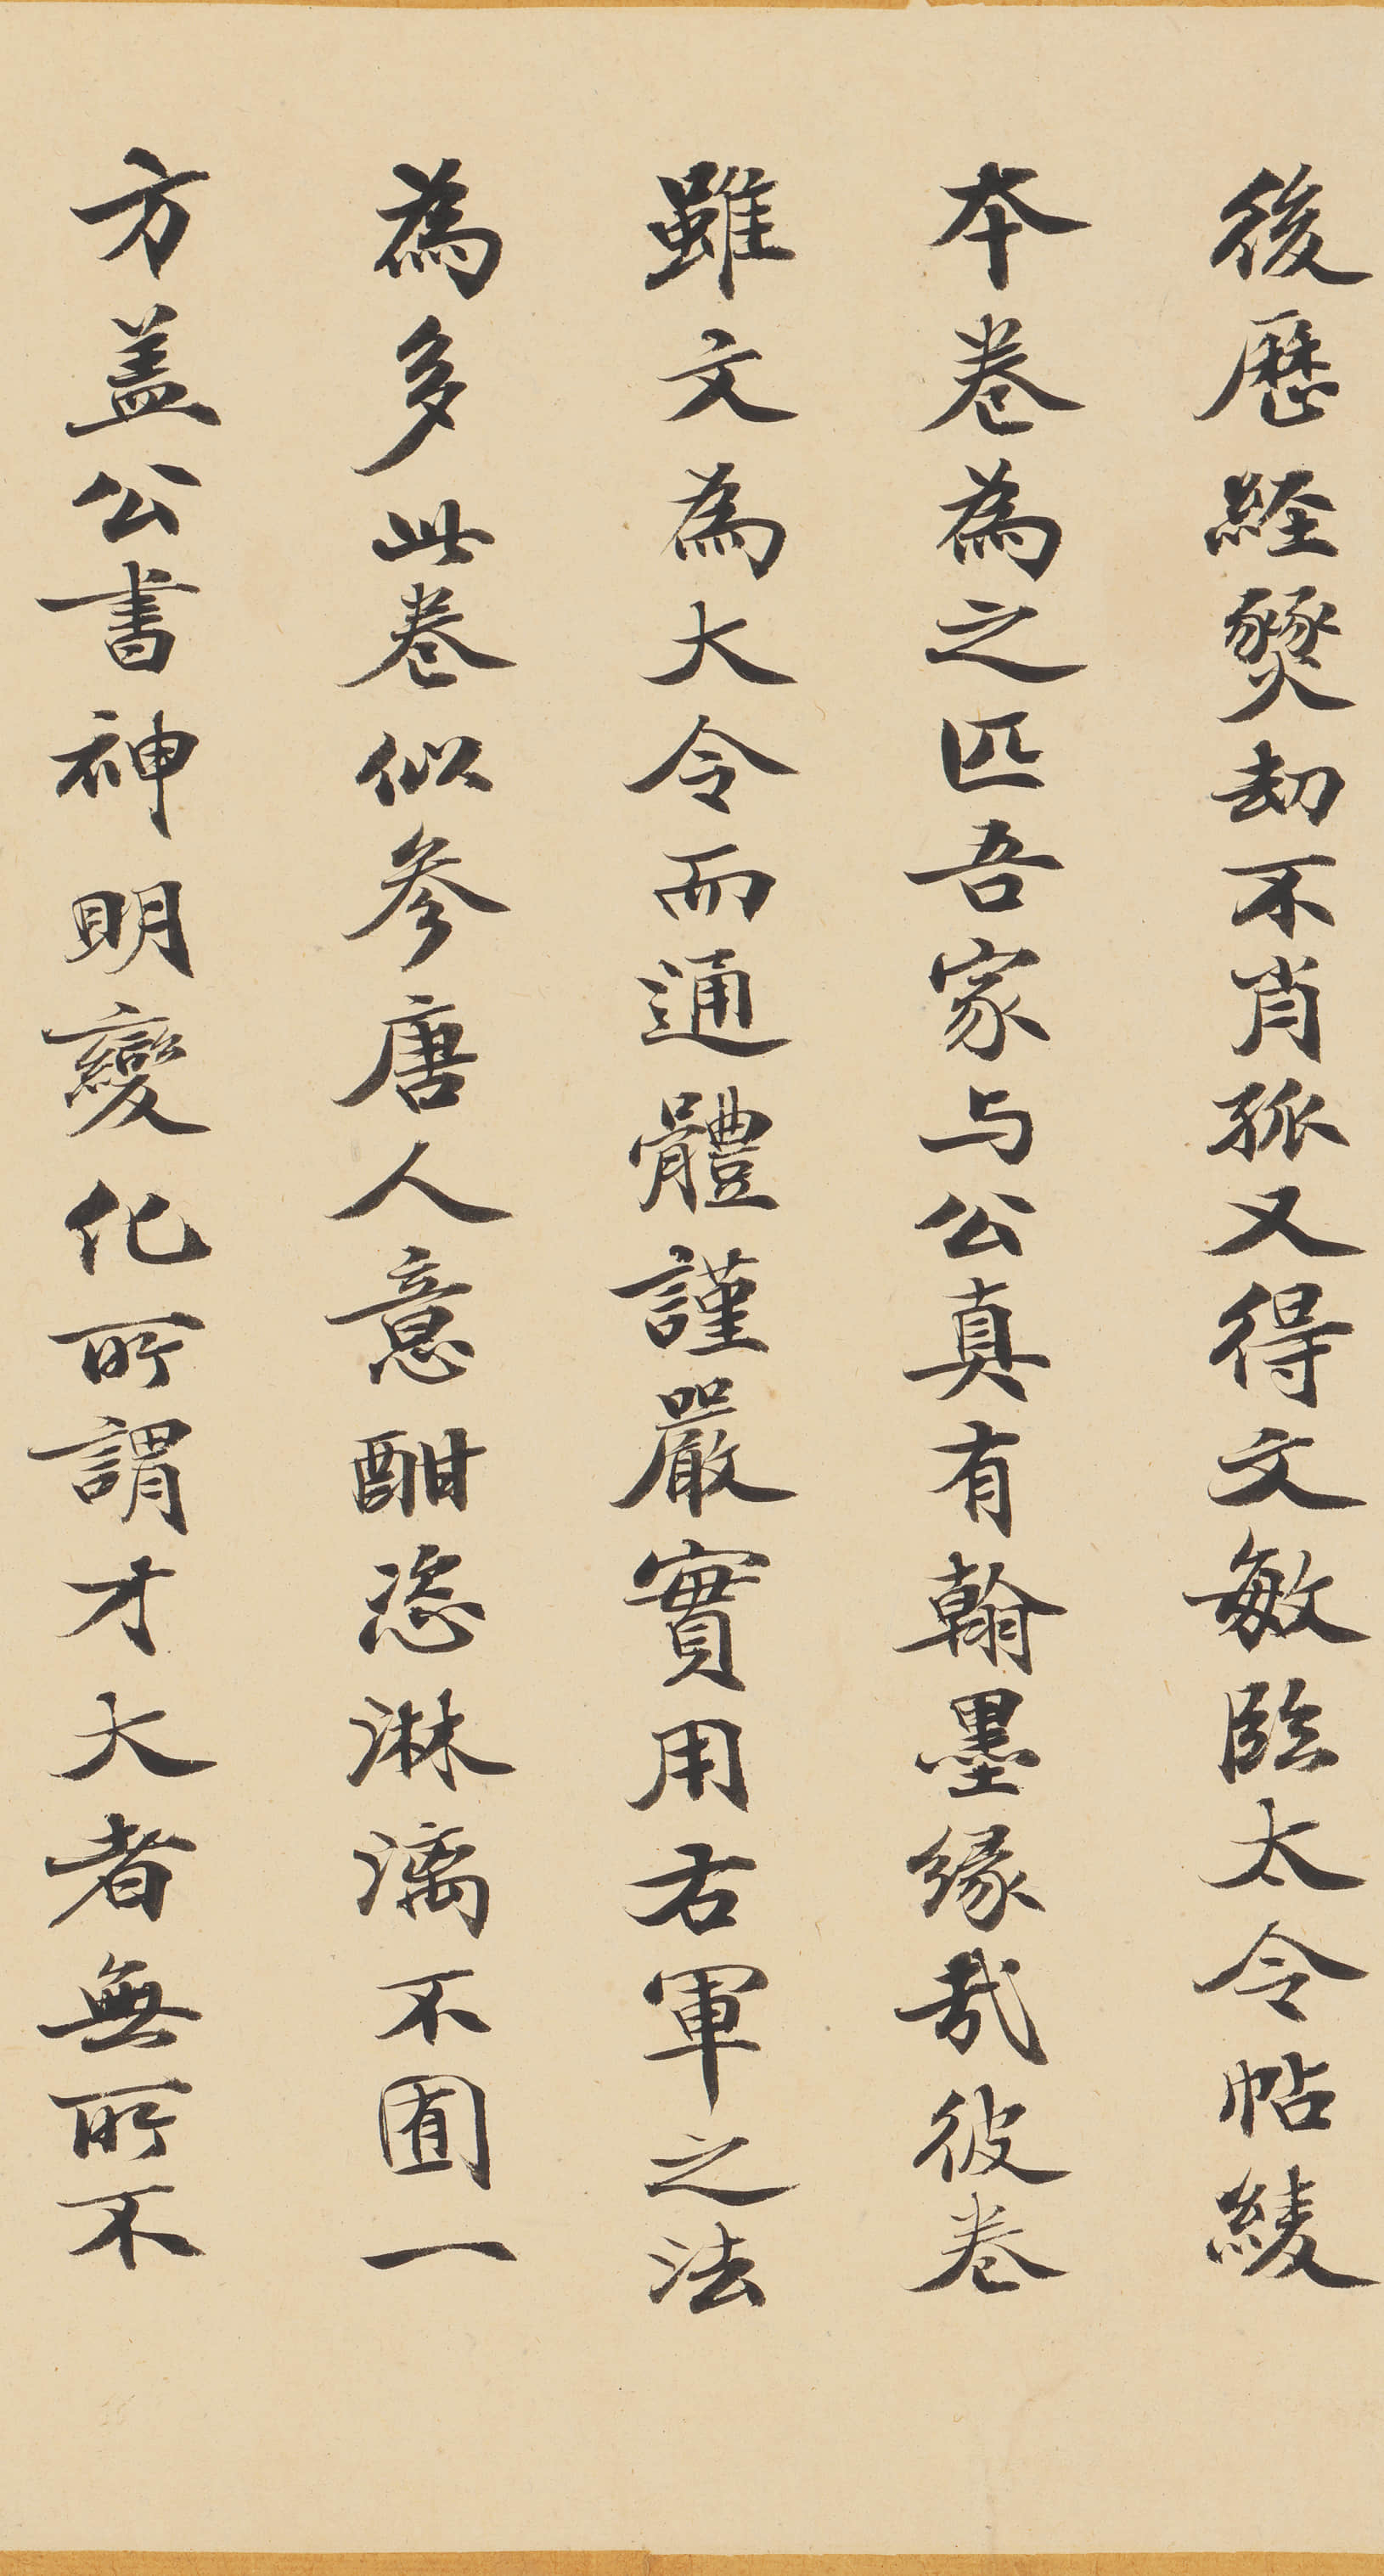 後歷經燹劫不肖孤又得文敏臨太令帖綾
本卷為之匹吾家与公真有翰墨緣哉彼卷
雖文為大令而通體謹嚴實用右軍之法
為多此卷似參唐人意酣恣淋漓不囿一
方蓋公書神明變化所謂才大者無所不